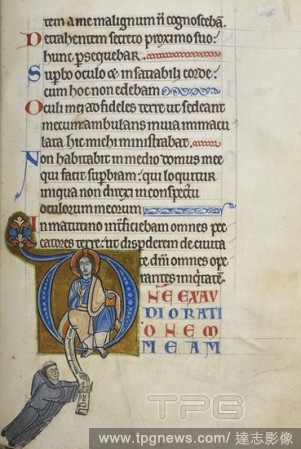 tem a me malignum n̄ cognosceba̅.
Detrahentem secreto proximo suo:
hunc persequebar.
Supbo oculo & insatiabili corde:
cum hoc non edebam
Oculi mei ad fideles terre ut sedeant
mecum: ambulans in uia immacu
lata hic michi ministrabat.
Non habitabit in medio domus mee
qui facit supbiam: qui loquitur
iniqua non direx in conspectu
oculorum meorum
In matutino int̄ficiebam omnes pec
catores terre: ut dispderem de ciuita
te dn̄i omnes ope
rantes iniq̇tate̅.
DNE EXAV
DI ORATI
ONEM
MEAM
TPG
www.tpgnews.com/影像 | 達志影像